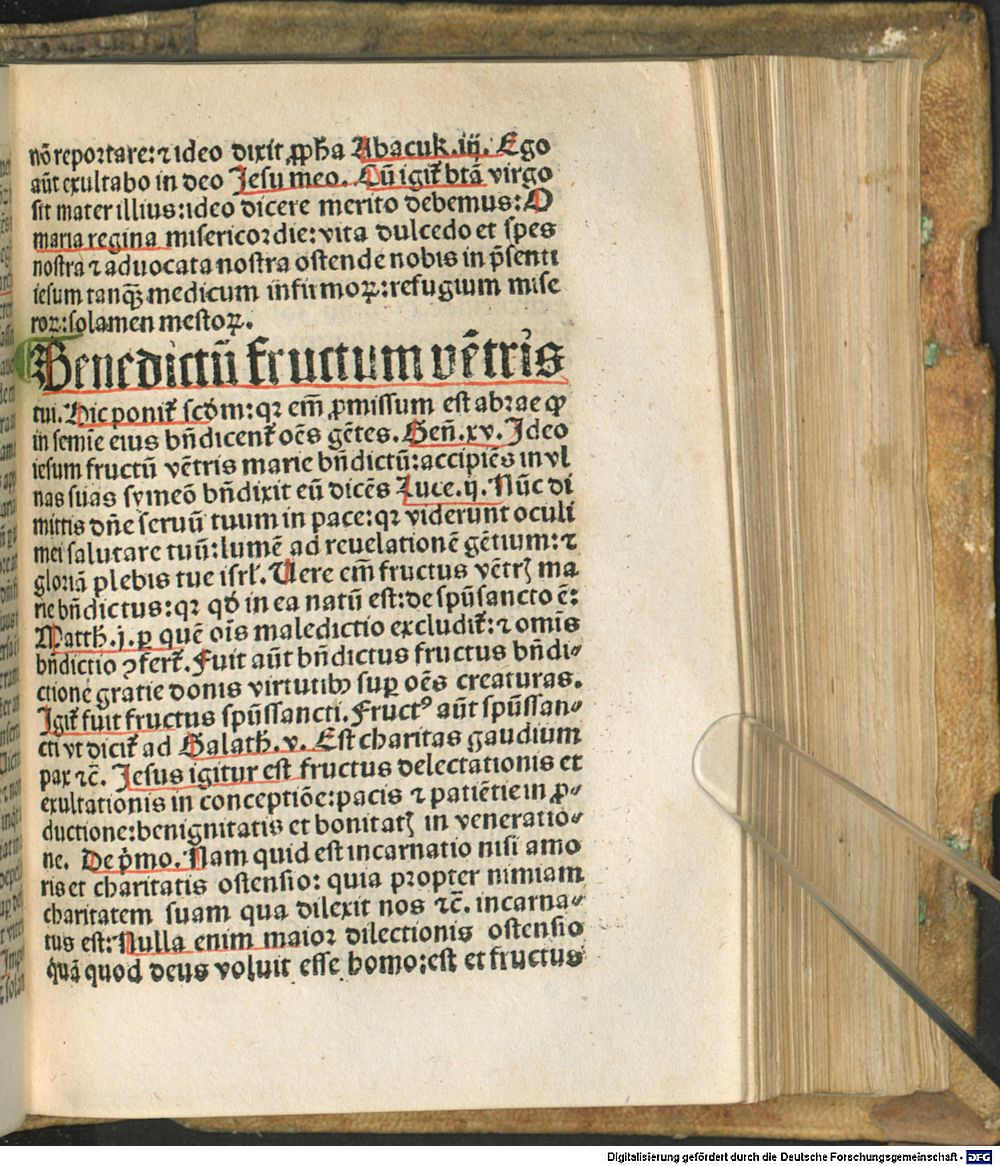 nō reportare: ⁊ ideo dixit ꝓph̄a Abacuk. iij. Ego
aūt exultabo in deo Jesu meo. Cū igit̄ btā virgo
sit mater illius: ideo dicere merito debemus: O
maria regina misericordie: vita dulcedo et spes
nostra ⁊ aduocata nostra ostende nobis in p̄senti
iesum tanqȝ medicum infirmoꝝ: refugium mise
roꝝ: solamen mestoꝝ.
Benedictū fructum vētris
tui. Hic ponit̄ scd̄m: qꝛ em̄ ꝓmissum est abrae ꝙ
in semīe eius bn̄dicent̄ oēs gētes. Gen̄. xv. Ideo
iesum fructū vētris marie bn̄dictū: accipiēs in vl
nas suas symeō bn̄dixit eū dicēs Luce. ij. Nūc di
mittis dn̄e seruū tuum in pace: qꝛ viderunt oculi
mei salutare tuū: lumē ad reuelationē gētium: ⁊
gloriā plebis tue isrl̓. Uere em̄ fructus vētrꝭ ma
rie bn̄dictus: qꝛ qd̓ in ea natū est: de spūsancto ē:
Matth̄. j. ꝑ quē oīs maledictio excludit̄: ⁊ omīs
bn̄dictio ꝯfert̄. Fuit aūt bn̄dictus fructus bn̄di⸗
ctionē gratie donis virtutibꝰ suꝑ oēs creaturas.
Igit̄ fuit fructus spūssancti. Fructꝰ aūt spūssan⸗
cti vt dicit̄ ad Galath̄. v. Est charitas gaudium
pax ⁊c̄. Jesus igitur est fructus delectationis et
exultationis in conceptiōe: pacis ⁊ patiētie in ꝓ⸗
ductione: benignitatis et bonitatꝭ in veneratio⸗
ne. De p̄mo. Nam quid est incarnatio nisi amo
ris et charitatis ostensio: quia propter nimiam
charitatem suam qua dilexit nos ⁊c̄. incarna⸗
tus est: Nulla enim maior dilectionis ostensio
quā quod deus voluit esse homo: est et fructus
Digitalisierung gefördert durch die Deutsche Forschungsgemeinschaft - DFG